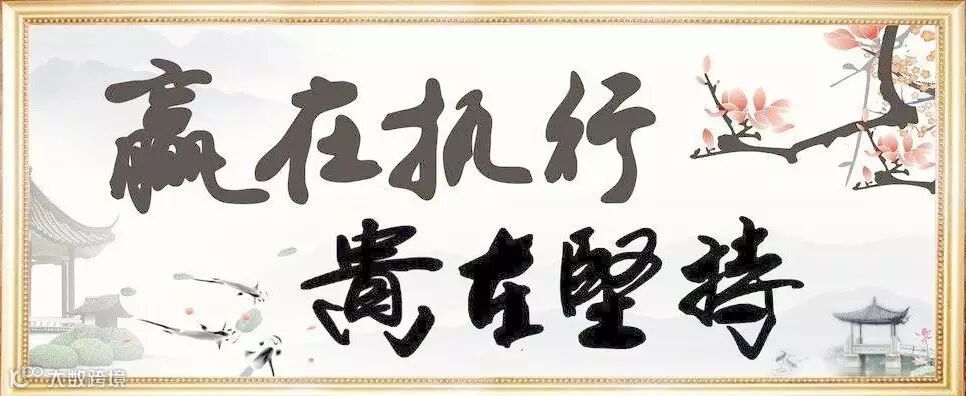 赢在执行
贵在坚持
大数跨境